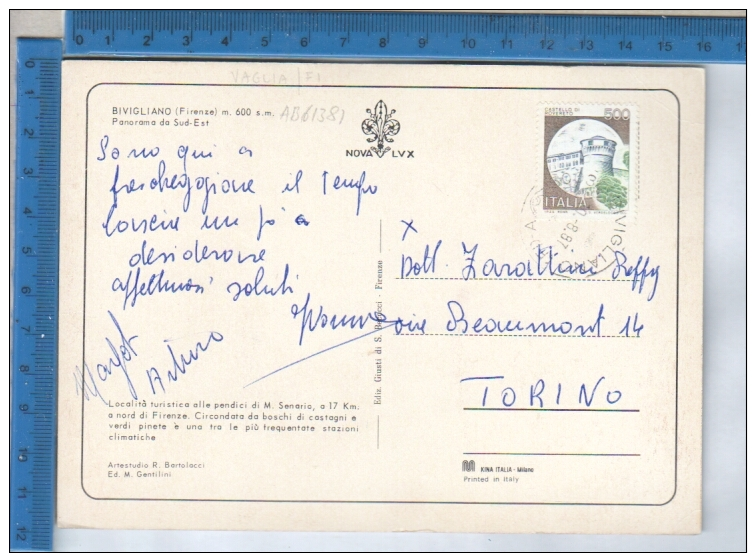 VAGLIA /FI
BIVIGLIANO (Firenze) m. 600 s.m. AB61381
Panorama da Sud-Est
NOVA LVX
CASTELLO DI
ROVERETO
500
ITALIA
BIVIGLIANO
Sono qui a
frescheggiare il tempo
lascia un po' a
desiderare
affettuosi saluti
Arturo
x
Dott. Zarattini
vie Beaumont 14
TORINO
Ediz. Giusti di S. Becocci - Firenze
Località turistica alle pendici di M. Senario, a 17 Km.
a nord di Firenze. Circondata da boschi di castagni e
verdi pinete è una tra le più frequentate stazioni
climatiche
Artestudio R. Bartolocci
Ed. M. Gentilini
KINA ITALIA - Milano
Printed in Italy
0 1 2 3 4 5 6 7 8 9 10 11 12 13 14 15 16 17
0 1 2 3 4 5 6 7 8 9 10 11 12